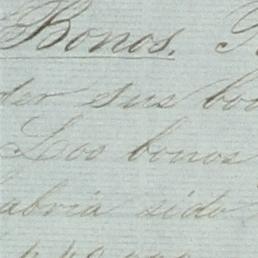 Bonos.
der sus bo
Los bonos
abria sido